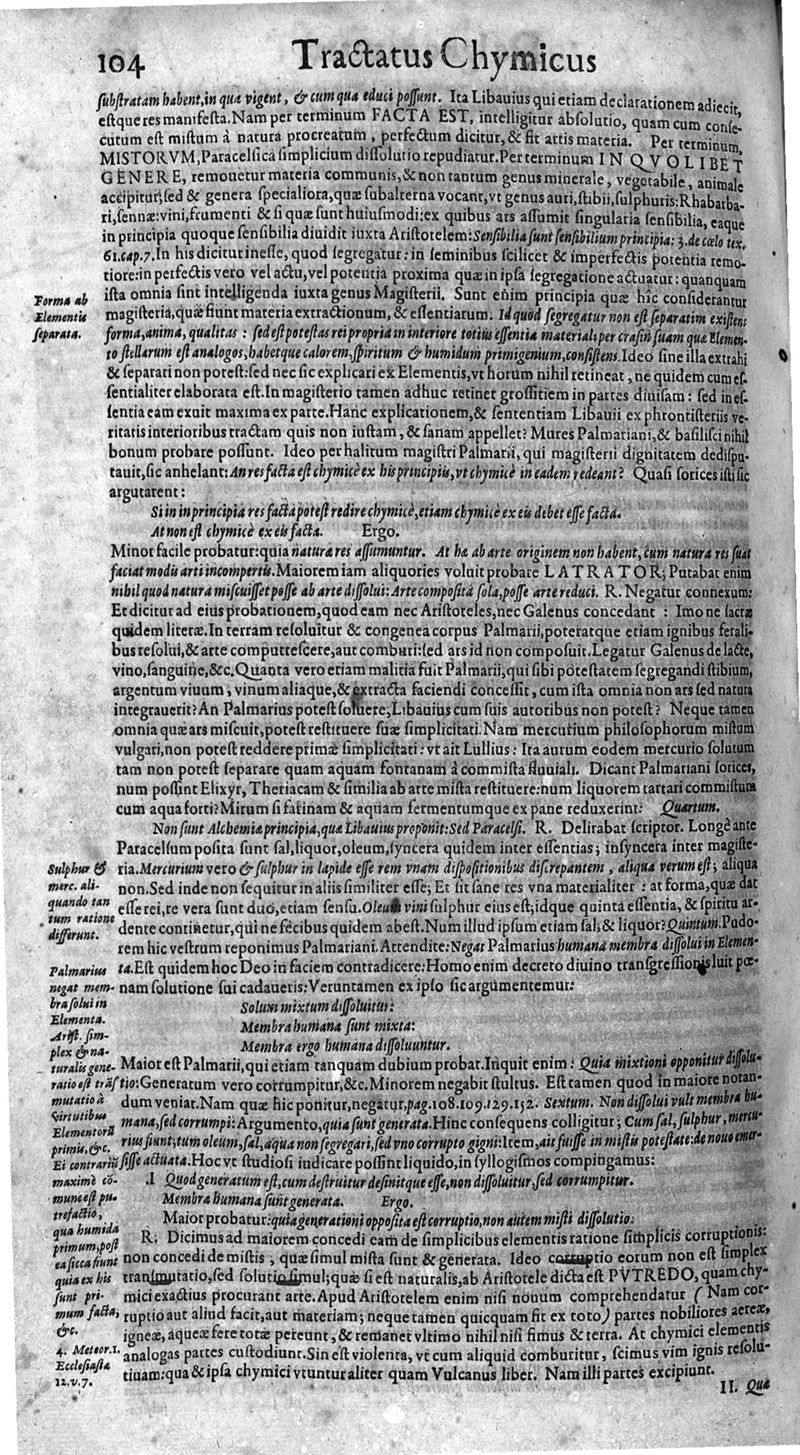 104 Tractatus Chymicus
substratam habent, in qua vigent, & cum qua educi possunt. Ita Libauius qui etiam declarationem adiecit,
estque res manifesta. Nam per terminum FACTA EST, intelligitur absolutio, quam cum conse-
cutum est mistum à natura procreatum, perfectum dicitur, & fit artis materia. Per terminum,
MISTORVM, Paracelsica simplicium dissolutio repudiatur. Per terminum IN QVOLIBET
GENERE, remouetur materia communis, & non tantum genus minerale, vegetabile, animale
accipitur; sed & genera specialiora, quæ subalterna vocant, vt genus auri, stibii, sulphuris: Rhabarba-
ri, sennæ: vini, frumenti & si quæ sunt huiusmodi: ex quibus ars assumit singularia sensibilia, eaque
in principia quoque sensibilia diuidit iuxta Aristotelem: Sensibilia sunt sensibilium principia: 3. de cœlo tex.
61. cap. 7. In his dicitur inesse, quod segregatur: in seminibus scilicet & imperfectis potentia remo-
tiore: in perfectis vero vel actu, vel potentia proxima quæ in ipsa segregatione actuatur: quanquam
ista omnia sint intelligenda iuxta genus Magisterii. Sunt enim principia quæ hic considerantur
Forma ab
Elementis
separata.
magisteria, quæ fiunt materia extractionum, & essentiarum. Id quod segregatur non est separatim existens
forma, anima, qualitas: sed est potestas rei propria in interiore totius essentia materiali per crasin suam quæ Elemen-
to stellarum est analogos, habetque calorem, spiritum & humidum primigenium, consistens. Ideo sine illa extrahi
& separari non potest: sed nec sic explicari ex Elementis, vt horum nihil retineat, ne quidem cum es-
sentialiter elaborata est. In magisterio tamen adhuc retinet grossitiem in partes diuisam: sed in es-
sentia eam exuit maxima ex parte. Hanc explicationem, & sententiam Libauii ex phrontisteriis ve-
ritatis interioribus tractam quis non iustam, & sanam appellet? Mures Palmariani, & basilisci nihil
bonum probare possunt. Ideo per halitum magistri Palmarii, qui magisterii dignitatem dedispu-
tauit, sic anhelant: An res facta est chymicè ex his principiis, vt chymicè in eadem redeant? Quasi sorices isti sic
argutarent:
Si in in principia res facta potest redire chymicè, etiam chymicè ex eis debet esse facta.
At non est chymicè ex eis facta. Ergo.
Minor facile probatur: quia natura res assumuntur. At hæ ab arte originem non habent, cum natura res suas
faciat modis arti incompertis. Maiorem iam aliquories voluit probare LATRATOR; Putabat enim
nihil quod natura miscuisset posse ab arte dissolui: Arte composita sola, posse arte reduci. R. Negatur connexum:
Et dicitur ad eius probationem, quod eam nec Aristoteles, nec Galenus concedant: Imo ne sacræ
quidem literæ. In terram resoluitur & congenea corpus Palmarii, poteratque etiam ignibus ferali-
bus resolui, & arte computrescere, aut comburi: sed ars id non composuit. Legatur Galenus de lacte,
vino, sanguine, &c. Quanta vero etiam malitia fuit Palmarii, qui sibi potestatem segregandi stibium,
argentum viuum, vinum aliaque, & extracta faciendi concessit, cum ista omnia non ars sed natura
integrauerit? An Palmarius potest soluere, Libauius cum suis autoribus non potest? Neque tamen
omnia quæ ars miscuit, potest restituere suæ simplicitati. Nam mercurium philosophorum mistum
vulgari, non potest reddere primæ simplicitati: vt ait Lullius: Ita aurum eodem mercurio solutum
tam non potest separare quam aquam fontanam à commista fluuiali. Dicant Palmariani sorices,
num possint Elixyr, Theriacam & similia ab arte mista restituere: num liquorem tartari commistum
cum aqua forti? Mirum si fatinam & aquam fermentumque ex pane reduxerint: Quartum.
Non sunt Alchemiæ principia, quæ Libauius proponit: Sed Paracelsi. R. Delirabat scriptor. Longè ante
Paracelsum posita sunt sal, liquor, oleum, syncera quidem inter essentias; insyncera inter magiste-
Sulphur &
merc. ali-
quando tan
tum ratione
differunt.
ria. Mercurium vero & sulphur in lapide esse rem vnam dispositionibus discrepantem, aliqua verum est; aliqua
non. Sed inde non sequitur in aliis similiter esse; Et sit sane res vna materialiter: at forma, quæ dat
esse rei, re vera sunt duo, etiam sensu. Oleum vini sulphur eius est; idque quinta essentia, & spiritu ar-
dente continetur, qui ne fecibus quidem abest. Num illud ipsum etiam sal; & liquor? Quintum. Pudo-
rem hic vestrum reponimus Palmariani. Attendite: Negat Palmarius humana membra dissolui in Elemen-
Palmarius
negat mem-
bra solui in
Elementa.
ta. Est quidem hoc Deo in faciem contradicere: Homo enim decreto diuino transgressionis luit pœ-
nam solutione sui cadaueris: Veruntamen ex ipso sic argumentemur:
Solum mixtum dissoluitur:
Membra humana sunt mixta:
Membra ergo humana dissoluuntur.
Arist. sim-
plex & na-
turalis gene-
ratio est träs
mutatio à
virtutibus
Elementorũ
primis, &c.
Ei contrariũ
maximè cõ-
mune est pu-
trefactio,
qua humida
primum, post
ea sicca fiunt
quia ex his
sunt pri-
mum facta,
&c.
4. Meteor. 1.
Ecclesiastæ
12. v. 7.
Maior est Palmarii, qui etiam tanquam dubium probat. Inquit enim: Quia mixtioni opponitur dissolu-
tio: Generatum vero corrumpitur, &c. Minorem negabit stultus. Est tamen quod in maiore notan-
dum veniat. Nam quæ hic ponitur, negatur, pag. 108. 109. 129. 152. Sextum. Non dissolui vult membra hu-
mana, sed corrumpi: Argumento, quia sunt generata. Hinc consequens colligitur; Cum sal, sulphur, mercu-
rius fiunt; tum oleum, sal, aqua non segregari, sed vno corrupto gigni: Item, ait fuisse in mistis potestate: de nouo emer-
sisse actuata. Hoc vt studiosi iudicare possint liquido, in syllogismos compingamus:
.I Quod generatum est, cum destruitur definitque esse, non dissoluitur, sed corrumpitur.
Membra humana sunt generata. Ergo.
Maior probatur: quia generationi opposita est corruptio, non autem misti dissolutio:
R. Dicimus ad maiorem concedi eam de simplicibus elementis ratione simplicis corruptionis:
non concedi de mistis, quæ simul mista sunt & generata. Ideo corruptio eorum non est simplex
transmutatio, sed solutio simul; quæ si est naturalis, ab Aristotele dicta est PVTREDO, quam chy-
mici exactius procurant arte. Apud Aristotelem enim nisi nouum comprehendatur (Nam cor-
ruptio aut aliud facit, aut materiam; neque tamen quicquam fit ex toto) partes nobiliores aereæ,
igneæ, aqueæ fere totæ pereunt, & remanet vltimo nihil nisi fimus & terra. At chymici elementis
analogas partes custodiunt. Sin est violenta, vt cum aliquid comburitur, scimus vim ignis resolu-
tiuam: qua & ipsa chymici vtuntur aliter quam Vulcanus liber. Nam illi partes excipiunt.
II. Quæ